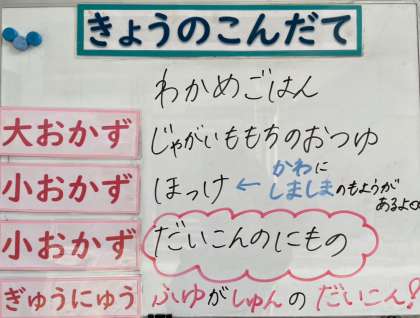 きょうのこんだて
わかめごはん
大おかず じゃがいももちのおつゆ
小おかず ほっけ ← かわに
しましまのもようが
あるよ
小おかず だいこんのにもの
ぎゅうにゅう ふゆがしゅんの だいこん!